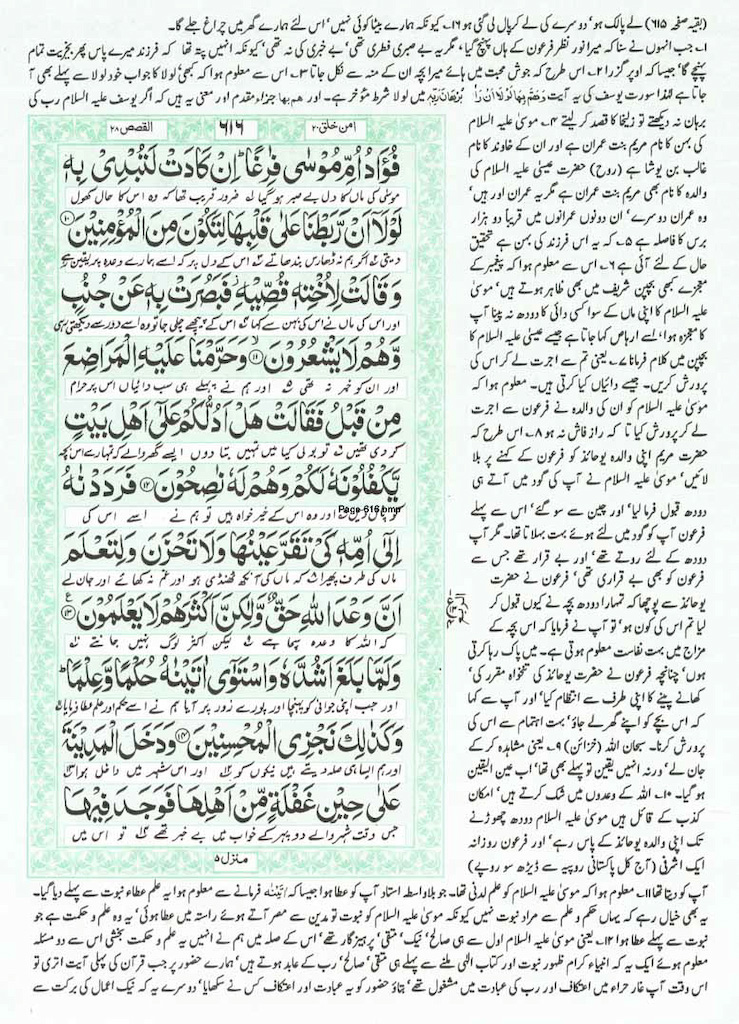 (بقیہ صفحہ ۶۱۵) لے پالک ہو' دوسرے کی لے کر پال لی گئی ہو ۱۶۔ کیونکہ ہمارے بیٹا کوئی نہیں' اس لئے ہمارے گھر میں چراغ جلے گا۔
۱۔ جب انہوں نے سنا کہ میرا نور نظر فرعون کے ہاں پہنچ گیا، مگر یہ بے صبری فطری تھی' بے خبری کی نہ تھی' کیونکہ انہیں پتہ تھا کہ فرزند میرے پاس پھر بخیریت تمام
پہنچے گا' جیسا کہ اوپر گزرا ۲۔ اس طرح کہ جوش محبت میں ہائے میرا بچہ ان کے منہ سے نکل جاتا ۳۔ اس سے معلوم ہوا کہ کبھی لولا کا جواب خود لولا سے پہلے بھی آ
جاتا ہے لہٰذا سورت یوسف کی یہ آیت وَهَمَّ بِهَا لَوْلَا أَنْ رَّاٰ بُرْهَانَ رَبِّهٖ میں لولا شرط مؤخر ہے۔ اور ھم بھا جزاء مقدم اور معنی یہ ہیں کہ اگر یوسف علیہ السلام رب کی
برہان نہ دیکھتے تو زلیخا کا قصد کر لیتے ۴۔ موسیٰ علیہ السلام
کی بہن کا نام مریم بنت عمران ہے اور ان کے خاوند کا نام
غالب بن یوشا ہے (روح) حضرت عیسیٰ علیہ السلام کی
والدہ کا نام بھی مریم بنت عمران ہے مگر یہ عمران اور ہیں'
وہ عمران دوسرے' ان دونوں عمرانوں میں قریباً دو ہزار
برس کا فاصلہ ہے ۵۔ کہ یہ اس فرزند کی بہن ہے تحقیق
حال کے لئے آئی ہے ۶۔ اس سے معلوم ہوا کہ پیغمبر کے
معجزے کبھی بچپن شریف میں بھی ظاہر ہوتے ہیں' موسیٰ
علیہ السلام کا اپنی ماں کے سوا کسی دائی کا دودھ نہ پینا آپ
کا معجزہ ہوا، اسے ارہاص کہا جاتا ہے جیسے عیسیٰ علیہ السلام کا
بچپن میں کلام فرمانا ۷۔ یعنی تم سے اجرت لے کر اس کی
پرورش کریں۔ جیسے دائیاں کیا کرتی ہیں۔ معلوم ہوا کہ
موسیٰ علیہ السلام کو ان کی والدہ نے فرعون سے اجرت
لے کر پرورش کیا تا کہ راز فاش نہ ہو ۸۔ اس طرح کہ
حضرت مریم اپنی والدہ یوحانذ کو فرعون کے کہنے پر بلا
لائیں' موسیٰ علیہ السلام نے آپ کی گود میں آتے ہی
دودھ قبول فرما لیا' اور چین سے سو گئے' اس سے پہلے
فرعون آپ کو گود میں لئے ہوئے بہت بہلاتا تھا۔ مگر آپ
دودھ کے لئے روتے تھے' اور بے قرار تھے جس سے
فرعون کو بھی بے قراری تھی' فرعون نے حضرت
یوحانذ سے پوچھا کہ تمہارا دودھ بچہ نے کیوں قبول کر
لیا تم اس کی کون ہو' تو آپ نے فرمایا کہ اس بچہ کے
مزاج میں بہت نفاست معلوم ہوتی ہے۔ میں پاک رہا کرتی
ہوں' چنانچہ فرعون نے حضرت یوحانذ کی تنخواہ مقرر کی'
کھانے پینے کا اپنی طرف سے انتظام کیا' اور آپ سے کہا
کہ اس بچے کو اپنے گھر لے جاؤ' بہت اہتمام سے اس کی
پرورش کرنا۔ سبحان اللہ (خزائن) ۹۔ یعنی مشاہدہ کر کے
جان لے' ورنہ انہیں یقین تو پہلے بھی تھا' اب عین الیقین
ہو گیا۔ ۱۰۔ اللہ کے وعدوں میں شک کرتے ہیں' امکان
کذب کے قائل ہیں موسیٰ علیہ السلام دودھ چھوڑنے
تک اپنی والدہ یوحانذ کے پاس رہے' اور فرعون روزانہ
ایک اشرفی (آج کل پاکستانی روپیہ سے ڈیڑھ سو روپے)
القصص ۲۸
۶۱۶
امن خلق ۲۰
فُؤَادُ اُمِّ مُوْسٰى فٰرِغًا ؕ اِنْ كَادَتْ لَتُبْدِیْ بِهٖ
موسیٰ کی ماں کا دل بے صبر ہو گیا ضرور قریب تھا کہ وہ اس کا حال کھول
لَوْلَاۤ اَنْ رَّبَطْنَا عَلٰى قَلْبِهَا لِتَكُوْنَ مِنَ الْمُؤْمِنِیْنَ ۝۱۰
دیتی اگر ہم نہ ڈھارس بندھاتے اس کے دل پر کہ اسے ہمارے وعدہ پر یقین رہے
وَ قَالَتْ لِاُخْتِهٖ قُصِّیْهِ ؗ فَبَصُرَتْ بِهٖ عَنْ جُنُبٍ
اور اس کی ماں نے اس کی بہن سے کہا اس کے پیچھے چلی جا تو وہ اسے دور سے دیکھتی رہی
وَّ هُمْ لَا یَشْعُرُوْنَ ۝۱۱ وَ حَرَّمْنَا عَلَیْهِ الْمَرَاضِعَ
اور ان کو خبر نہ تھی اور ہم نے پہلے ہی سب دائیاں اس پر حرام
مِنْ قَبْلُ فَقَالَتْ هَلْ اَدُلُّكُمْ عَلٰۤى اَهْلِ بَیْتٍ
کر دی تھیں تو بولی کیا میں تمہیں بتا دوں ایسے گھر والے کہ تمہارے اس بچہ
یَّكْفُلُوْنَهٗ لَكُمْ وَ هُمْ لَهٗ نٰصِحُوْنَ ۝۱۲ فَرَدَدْنٰهُ
Page 616.bmp
کو پال دیں اور وہ اس کے خیر خواہ ہیں تو ہم نے اسے اس کی
اِلٰۤى اُمِّهٖ كَیْ تَقَرَّ عَیْنُهَا وَ لَا تَحْزَنَ وَ لِتَعْلَمَ
ماں کی طرف پھیرا کہ ماں کی آنکھ ٹھنڈی ہو اور غم نہ کھائے اور جان لے
اَنَّ وَعْدَ اللّٰهِ حَقٌّ وَّ لٰكِنَّ اَكْثَرَهُمْ لَا یَعْلَمُوْنَ ۝۱۳
کہ اللہ کا وعدہ سچا ہے لیکن اکثر لوگ نہیں جانتے
وَ لَمَّا بَلَغَ اَشُدَّهٗ وَ اسْتَوٰۤى اٰتَیْنٰهُ حُكْمًا وَّ عِلْمًا ؕ
اور جب اپنی جوانی کو پہنچا اور پورے زور پر آیا ہم نے اسے حکم اور علم عطا فرمایا
وَ كَذٰلِكَ نَجْزِی الْمُحْسِنِیْنَ ۝۱۴ وَ دَخَلَ الْمَدِیْنَةَ
اور ہم ایسا ہی صلہ دیتے ہیں نیکوں کو اور اس شہر میں داخل ہوا
عَلٰى حِیْنِ غَفْلَةٍ مِّنْ اَهْلِهَا فَوَجَدَ فِیْهَا
جس وقت شہر والے دوپہر کے خواب میں بے خبر تھے تو اس میں
منزل ۵
آپ کو دیتا تھا ۱۱۔ معلوم ہوا کہ موسیٰ علیہ السلام کو علم لدنی تھا۔ جو بلاواسطہ استاد آپ کو عطا ہوا جیسا کہ اٰتَیْنٰهُ فرمانے سے معلوم ہوا یہ علم عطاء نبوت سے پہلے دیا گیا۔
یہ بھی خیال رہے کہ یہاں حکم و علم سے مراد نبوت نہیں کیونکہ موسیٰ علیہ السلام کو نبوت تو مدین سے مصر آتے ہوئے راستہ میں عطا ہوئی' یہ وہ علم و حکمت ہے جو
نبوت سے پہلے عطا ہوا ۱۲۔ یعنی موسیٰ علیہ السلام اول سے ہی صالح' نیک' متقی' پرہیزگار تھے' اس کے صلہ میں ہم نے انہیں یہ علم و حکمت بخشی اس سے دو مسئلہ
معلوم ہوئے ایک یہ کہ انبیاء کرام ظہور نبوت اور کتاب الٰہی ملنے سے پہلے ہی متقی' صالح' رب کے عابد ہوتے ہیں' ہمارے حضور پر جب قرآن کی پہلی آیت اتری تو
اس وقت آپ غار حراء میں اعتکاف اور رب کی عبادت میں مشغول تھے' بتاؤ حضور کو یہ عبادت اور اعتکاف کس نے سکھایا' دوسرے یہ کہ نیک اعمال کی برکت سے